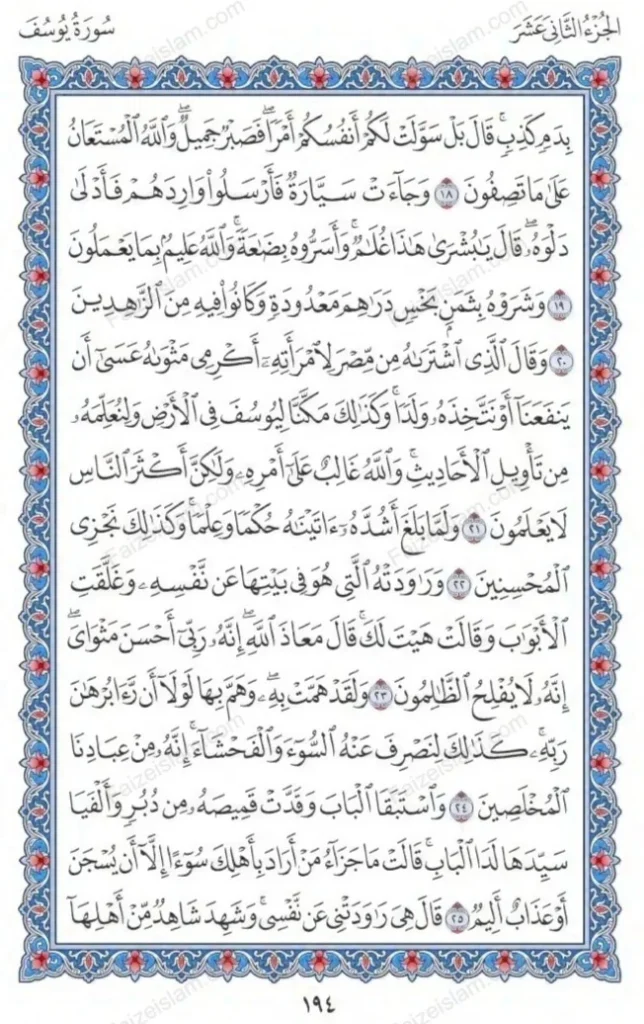 الجُزْءُ الثَّانِي عَشَرَ
سُورَةُ يُوسُفَ
بِدَمٍ كَذِبٍۚ قَالَ بَلْ سَوَّلَتْ لَكُمْ أَنفُسُكُمْ أَمْرًاۖ فَصَبْرٌ جَمِيلٌۖ وَٱللَّهُ ٱلْمُسْتَعَانُ
عَلَىٰ مَا تَصِفُونَ ١٨ وَجَآءَتْ سَيَّارَةٌ فَأَرْسَلُوا۟ وَارِدَهُمْ فَأَدْلَىٰ
دَلْوَهُۥۖ قَالَ يَـٰبُشْرَىٰ هَـٰذَا غُلَـٰمٌۚ وَأَسَرُّوهُ بِضَـٰعَةًۚ وَٱللَّهُ عَلِيمٌۢ بِمَا يَعْمَلُونَ
١٩ وَشَرَوْهُ بِثَمَنٍۭ بَخْسٍ دَرَٰهِمَ مَعْدُودَةٍ وَكَانُوا۟ فِيهِ مِنَ ٱلزَّٰهِدِينَ
٢٠ وَقَالَ ٱلَّذِى ٱشْتَرَىٰهُ مِن مِّصْرَ لِٱمْرَأَتِهِۦٓ أَكْرِمِى مَثْوَىٰهُ عَسَىٰٓ أَن
يَنفَعَنَآ أَوْ نَتَّخِذَهُۥ وَلَدًاۚ وَكَذَٰلِكَ مَكَّنَّا لِيُوسُفَ فِى ٱلْأَرْضِ وَلِنُعَلِّمَهُۥ
مِن تَأْوِيلِ ٱلْأَحَادِيثِۚ وَٱللَّهُ غَالِبٌ عَلَىٰٓ أَمْرِهِۦ وَلَـٰكِنَّ أَكْثَرَ ٱلنَّاسِ
لَا يَعْلَمُونَ ٢١ وَلَمَّا بَلَغَ أَشُدَّهُۥٓ ءَاتَيْنَـٰهُ حُكْمًا وَعِلْمًاۚ وَكَذَٰلِكَ نَجْزِى
ٱلْمُحْسِنِينَ ٢٢ وَرَٰوَدَتْهُ ٱلَّتِى هُوَ فِى بَيْتِهَا عَن نَّفْسِهِۦ وَغَلَّقَتِ
ٱلْأَبْوَٰبَ وَقَالَتْ هَيْتَ لَكَۚ قَالَ مَعَاذَ ٱللَّهِۖ إِنَّهُۥ رَبِّىٓ أَحْسَنَ مَثْوَاىَۖ
إِنَّهُۥ لَا يُفْلِحُ ٱلظَّـٰلِمُونَ ٢٣ وَلَقَدْ هَمَّتْ بِهِۦۖ وَهَمَّ بِهَا لَوْلَآ أَن رَّءَا بُرْهَـٰنَ
رَبِّهِۦۚ كَذَٰلِكَ لِنَصْرِفَ عَنْهُ ٱلسُّوٓءَ وَٱلْفَحْشَآءَۚ إِنَّهُۥ مِنْ عِبَادِنَا
ٱلْمُخْلَصِينَ ٢٤ وَٱسْتَبَقَا ٱلْبَابَ وَقَدَّتْ قَمِيصَهُۥ مِن دُبُرٍ وَأَلْفَيَا
سَيِّدَهَا لَدَا ٱلْبَابِۚ قَالَتْ مَا جَزَآءُ مَنْ أَرَادَ بِأَهْلِكَ سُوٓءًا إِلَّآ أَن يُسْجَنَ
أَوْ عَذَابٌ أَلِيمٌ ٢٥ قَالَ هِىَ رَٰوَدَتْنِى عَن نَّفْسِىۚ وَشَهِدَ شَاهِدٌ مِّنْ أَهْلِهَآ
١٩٤
Faizeislam.com